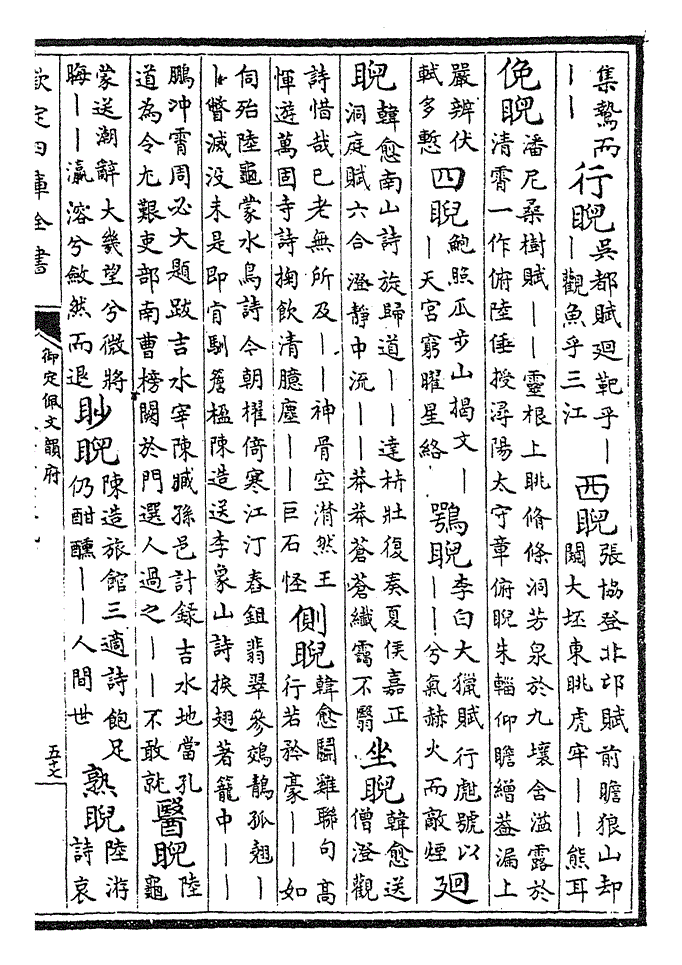 集鷙而
一一
行睨
吳都賦廻靶乎一
一觀魚乎三江
西睨
張協登北邙賦前瞻狼山却
闚大坯東眺虎牢一一熊耳
俛睨
潘尼桑樹賦一一靈根上眺脩條洞芳泉於九壤含溢露於
清霄一作俯陸倕授潯陽太守章俯睨朱輜仰瞻繒葢漏上
嚴辨伏
軾多慙
四睨
鮑照瓜步山揭文一
一天宮窮曜星絡
鶚睨
李白大獵賦行彪號以
一一兮氣赫火而敵煙
廻
睨
韓愈南山詩旋歸道一一達枿壯復奏夏侯嘉正
洞庭賦六合澄靜中流一一莽莽蒼蒼纖靄不翳
坐睨
韓愈送
僧澄觀
詩惜哉已老無所及一一神骨空潸然王
惲遊萬固寺詩掬飲清臆塵一一巨石怪
側睨
韓愈鬭雞聯句高
行若矜豪一一如
伺殆陸龜蒙水鳥詩今朝櫂倚寒江汀舂鉏翡翠參鵁鶄孤翹一
一瞥滅没未是即肯馴簷楹陳造送李象山詩捩翅著籠中一一
鵬冲霄周必大題跋吉水宰陳臧孫邑計録吉水地當孔
道為令尤艱吏部南曹榜闕於門選人過之一一不敢就
醫睨
陸
龜
蒙送潮辭大幾望兮微將
晦一一瀛溶兮斂然而退
眇睨
陳造旅館三適詩飽足
仍酣醺一一人間世
熟睨
陸游
詩哀
欽定四庫全書
御定佩文韻府